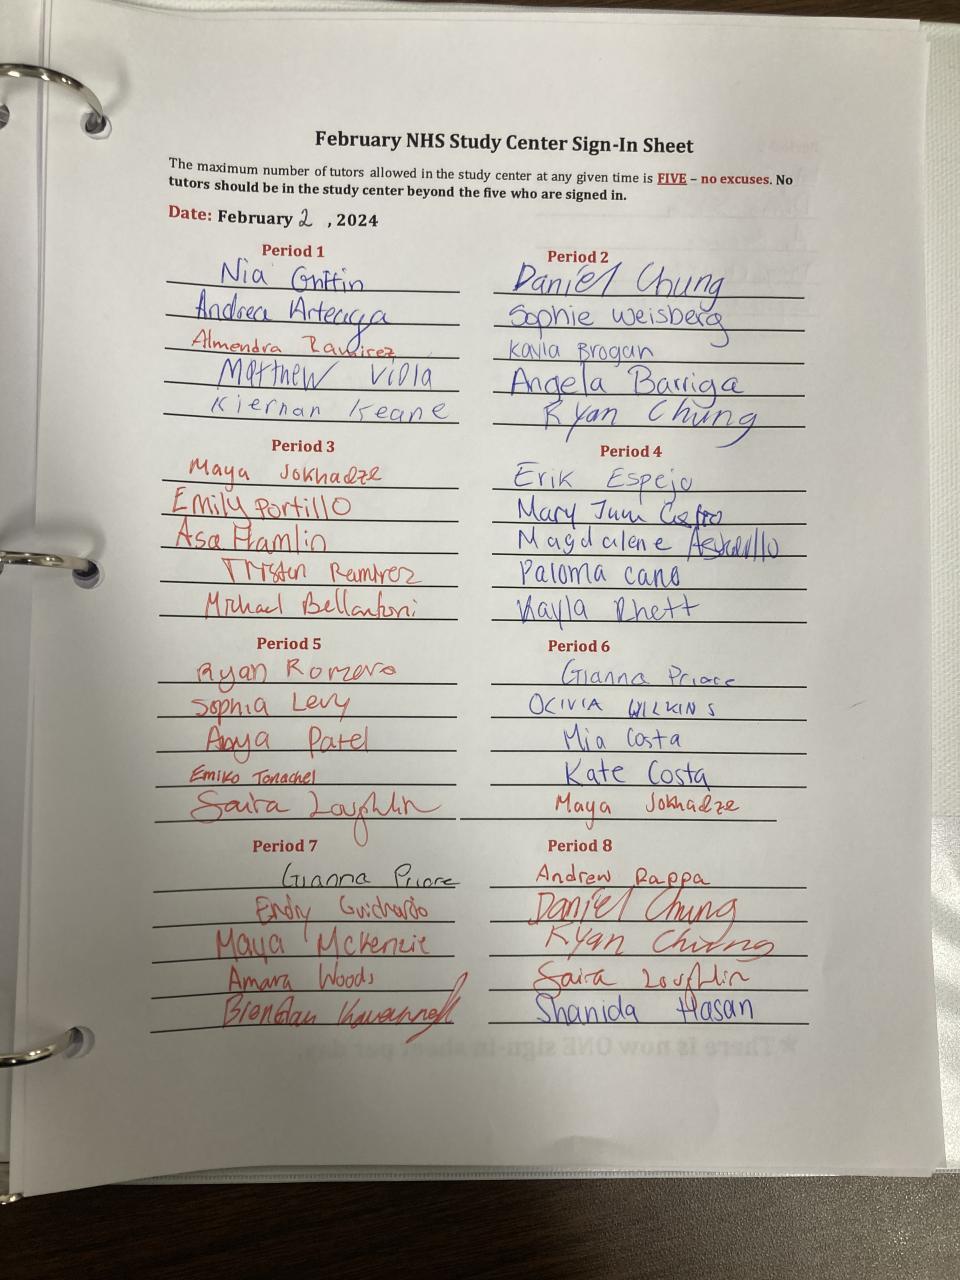 February NHS Study Center Sign-In Sheet
The maximum number of tutors allowed in the study center at any given time is FIVE – no excuses. No
tutors should be in the study center beyond the five who are signed in.
Date: February 2 , 2024
Period 1
Nia Griffin
Andrea Arteaga
Almendra Ramirez
Matthew Viola
Kiernan Keane
Period 2
Daniel Chung
Sophie Weisberg
Kayla Brogan
Angela Barriga
Ryan Chung
Period 3
Maya Jokhadze
Emily Portillo
Asa Hamlin
Tristen Ramirez
Michael Bellantoni
Period 4
Erik Espejo
Mary
Magdalene
Paloma Cano
Kayla Rhett
Period 5
Ryan Romero
Sophia Levy
Anya Patel
Emiko Tonachel
Saira Loughlin
Period 6
Gianna Priore
OCIVIA WILKINS
Mia Costa
Kate Costa
Maya Jokhadze
Period 7
Gianna Priore
Endry Guichardo
Maya McKenzie
Amara Woods
Brendan
Period 8
Andrew Rappa
Daniel Chung
Ryan Chung
Saira Loughlin
Shanida Hasan